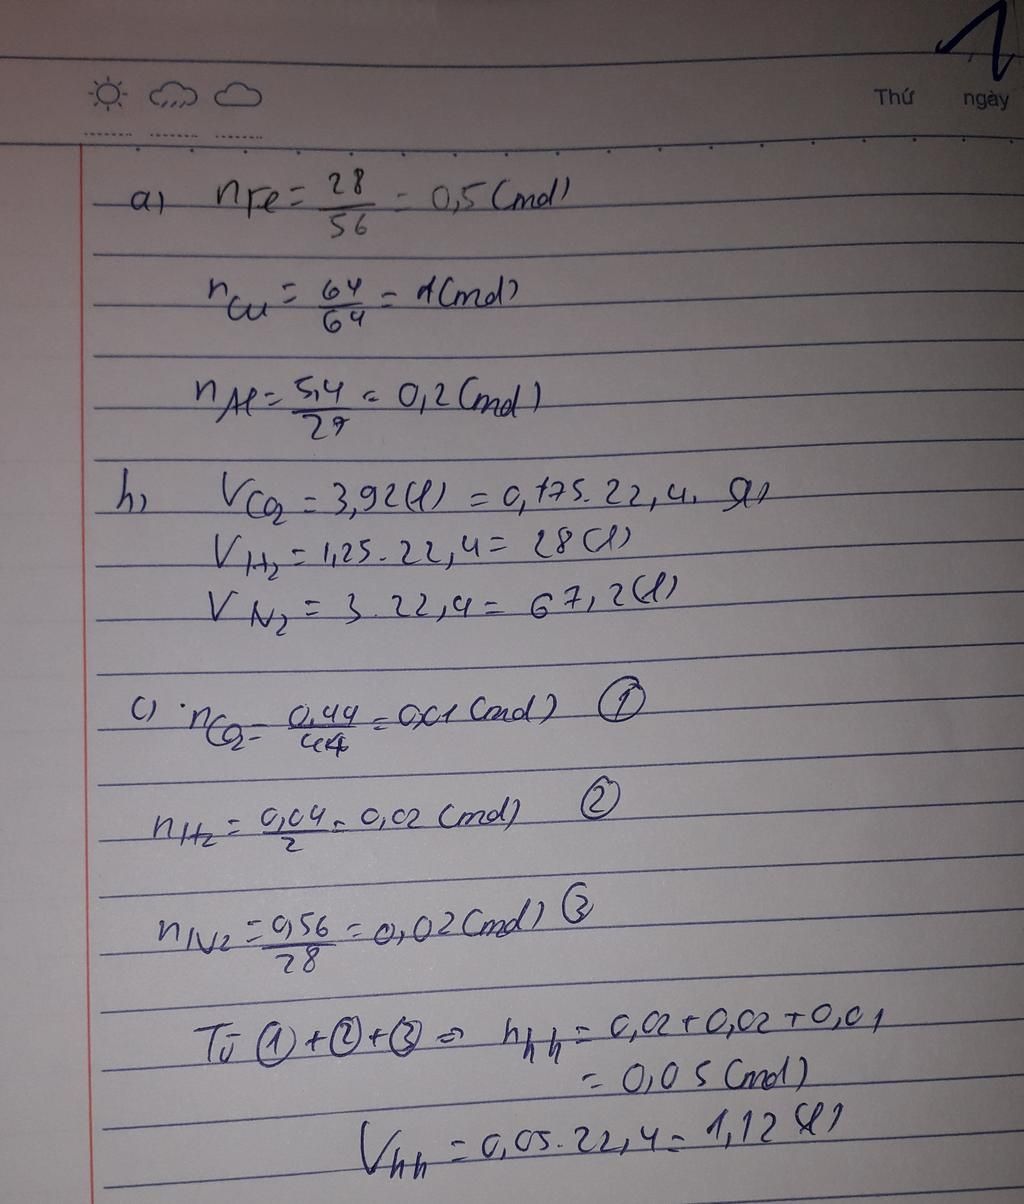 Thứ ngày
a) nFe = 28/56 = 0,5 (mol)
nCu = 64/64 = 1 (mol)
nAl = 5,4/27 = 0,2 (mol)
b) VCO2 = 3,92 (l) = 0,175 . 22,4.
VH2 = 1,25 . 22,4 = 28 (l)
VN2 = 3 . 22,4 = 67,2 (l)
c) nCO2 = 0,44/44 = 0,01 (mol) ①
nH2 = 0,04/2 = 0,02 (mol) ②
nN2 = 0,56/28 = 0,02 (mol) ③
Từ ① + ② + ③ => nhh = 0,02 + 0,02 + 0,01
= 0,05 (mol)
Vhh = 0,05 . 22,4 = 1,12 (l)